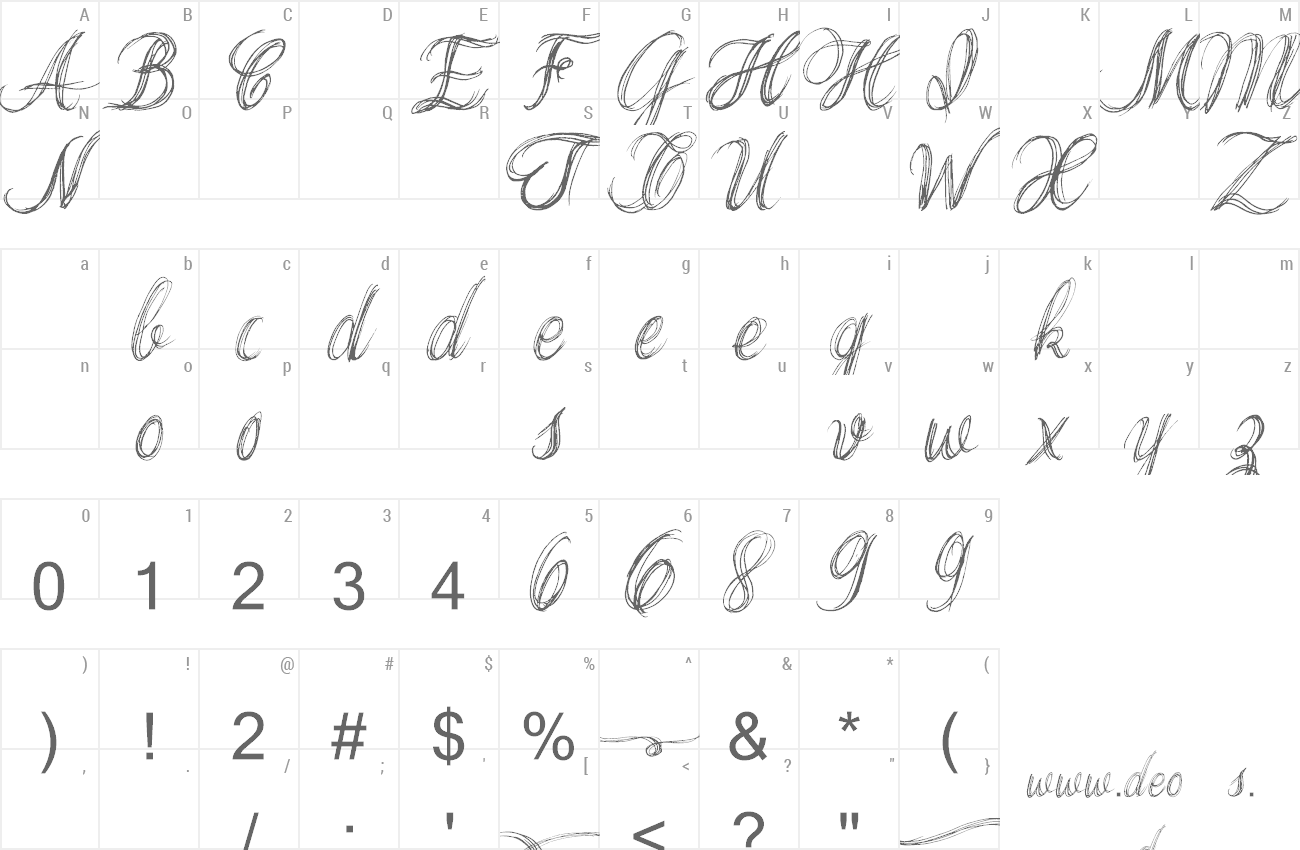 A B C D E F G H I J K L M
A B C E F G H H I M M
N O P Q R S T U V W X Y Z
N T T U W X Z
a b c d e f g h i j k l m
b c d d e e e g k
n o p q r s t u v w x y z
o o s v w x y z
0 1 2 3 4 5 6 7 8 9
0 1 2 3 4 6 6 8 9 9
) ! @ # $ % ^ & * (
) ! 2 # $ % & * (
, . / ; ' [ < ? " }
www.deo s.
/ ' < ? "
d